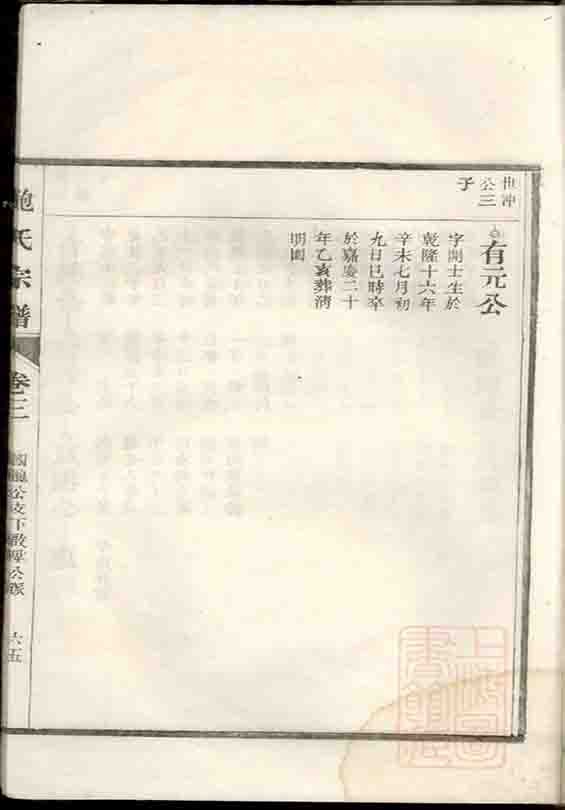 世冲
公三
子
有元公
字開士生於
乾隆十六年
辛未七月初
九日巳時卒
於嘉慶二十
年乙亥葬清
明園
鮑氏宗譜
卷三
公支下啟
公派
六五
上海圖
書館藏